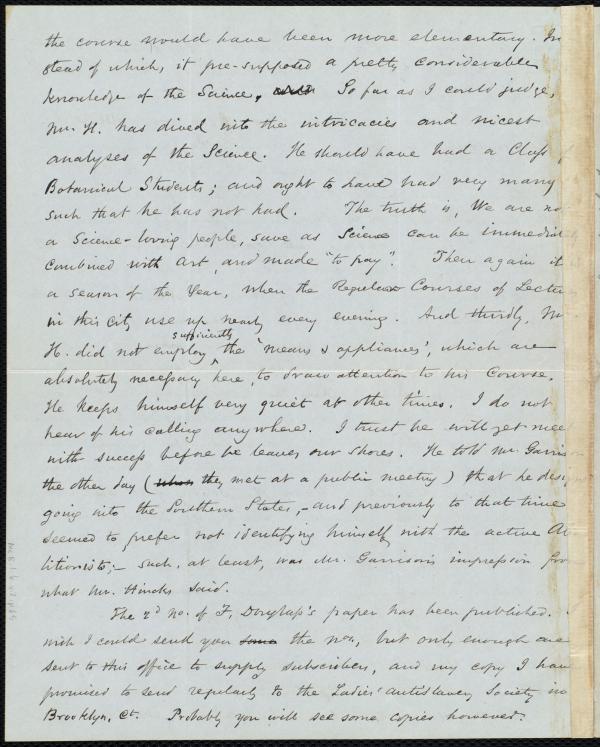 the course would have been more elementary. In
stead of which, it pre-supposed a pretty considerable
knowledge of the Science. So far as I could judge,
Mr. H. has dived into the intricacies and nicest
analyses of the Science. He should have had a Class
Botanical Students; and ought to have had very many
such that he has not had. The truth is, We are no
a Science-loving people, save as Science can be immediat
combined with Art, and made "to pay". Then again it
a season of the Year, when the Regular Courses of Lectu
in this City use up nearly every evening. And thirdly, Mr
sufficiently
H. did not employ ^ the 'means & appliances', which are
absolutely necessary here, to draw attention to his Course.
He keeps himself very quiet at other times. I do not
hear of his calling anywhere. I trust he will yet meet
with success before he leaves our shores. He told Mr. Garrison
the other day (when they met at a public meeting) that he desi
going into the Southern States, - and previously to that time
seemed to prefer not identifying himself with the active Ab
litionists; - such, at least, was Mr. Garrison's impression from
what Mr. Hincks said.
The 2d no. of F. Douglass's paper has been published.
wish I could send you some the nos, but only enough are
sent to this office to supply subscribers, and my copy I have
promised to send regularly to the Ladies' antislavery Society in
Brooklyn, Ct. Probably you will see some copies however.